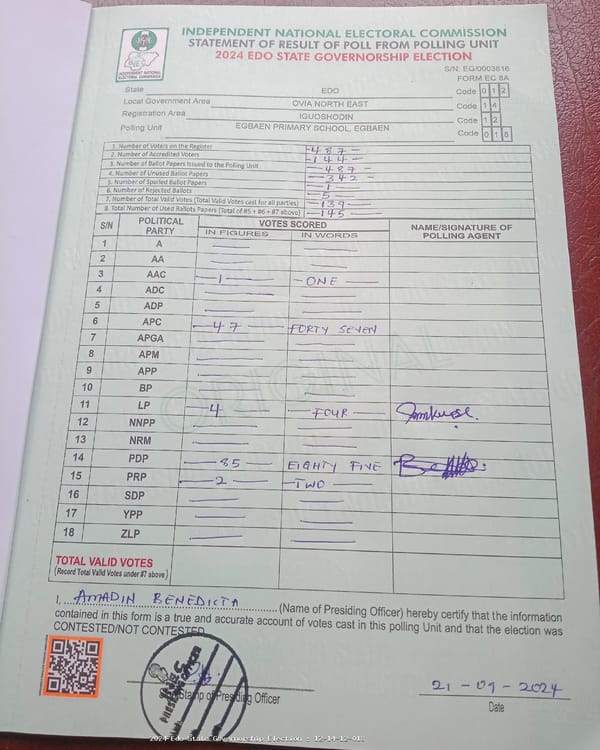 INDEPENDENT NATIONAL ELECTORAL COMMISSION
STATEMENT OF RESULT OF POLL FROM POLLING UNIT
2024 EDO STATE GOVERNORSHIP ELECTION
INEC
INDEPENDENT NATIONAL ELECTORAL COMMISSION
S/N: EG/0003616
FORM EC 8A
State EDO Code 0 1 2
Local Government Area OVIA NORTH EAST Code 1 4
Registration Area IGUOSHODIN Code 1 2
Polling Unit EGBAEN PRIMARY SCHOOL, EGBAEN Code 0 1 8
1. Number of Voters on the Register -487-
2. Number of Accredited Voters -144-
3. Number of Ballot Papers Issued to the Polling Unit -487-
4. Number of Unused Ballot Papers -342-
5. Number of Spoiled Ballot Papers -1-
6. Number of Rejected Ballots -5-
7. Number of Total Valid Votes (Total Valid Votes cast for all parties) -139-
8. Total Number of Used Ballots Papers (Total of #5 + #6 + #7 above) -145-
S/N POLITICAL PARTY VOTES SCORED NAME/SIGNATURE OF POLLING AGENT
IN FIGURES IN WORDS
1 A
2 AA
3 AAC -1- -ONE-
4 ADC
5 ADP
6 APC -47- FORTY SEVEN
7 APGA
8 APM
9 APP
10 BP
11 LP -4- -FOUR-
12 NNPP
13 NRM
14 PDP -85- EIGHTY FIVE
15 PRP -2- -TWO-
16 SDP
17 YPP
18 ZLP
ORIGINAL
TOTAL VALID VOTES
(Record Total Valid Votes under #7 above)
I, AMADIN BENEDICTA (Name of Presiding Officer) hereby certify that the information
contained in this form is a true and accurate account of votes cast in this polling Unit and that the election was
CONTESTED/NOT CONTESTED
INEC
Stamp of Presiding Officer
21-09-2024
Date
2024 Edo State Governorship Election : 12-14-12-018